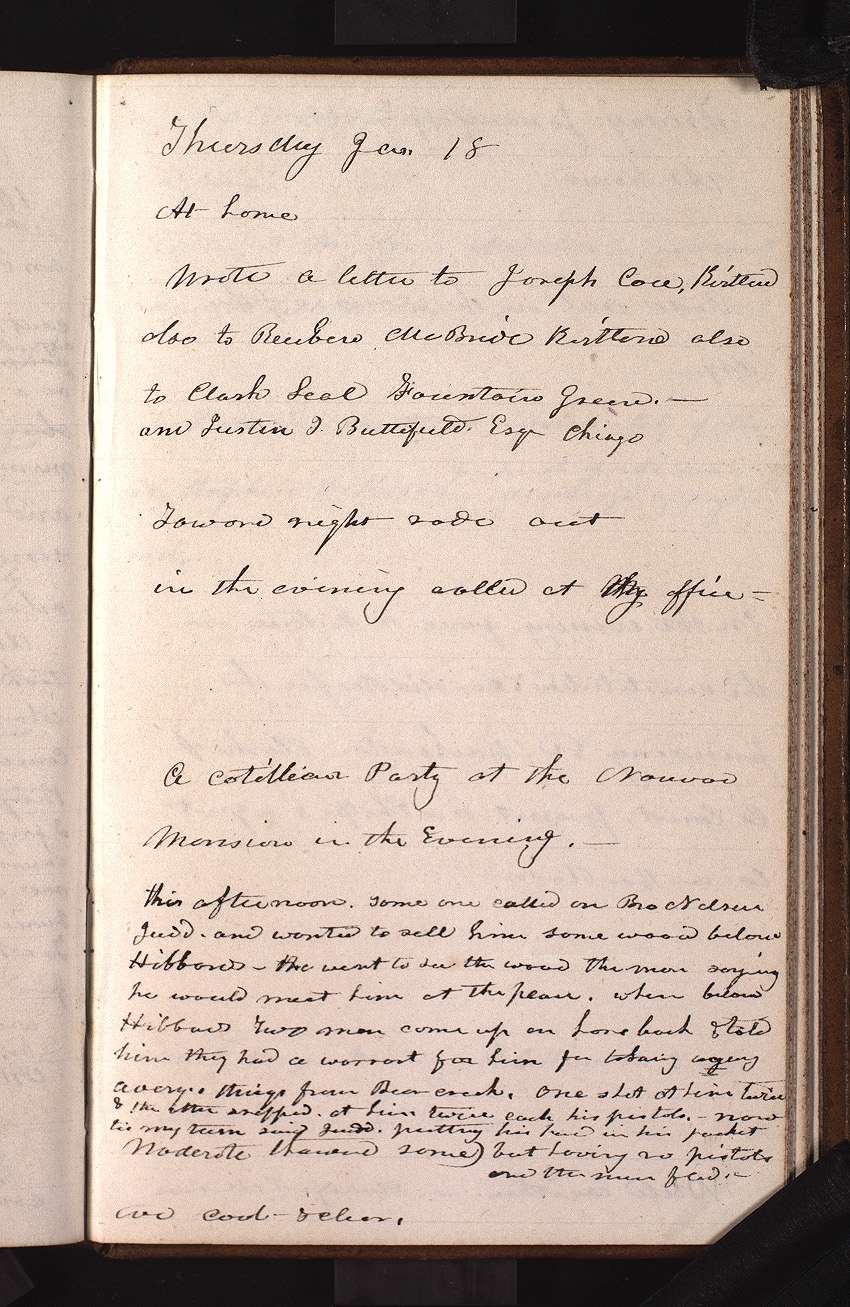 Thursday Jan. 18
At home
Wrote a letter to Joseph Coe, Kirtland
also to Reuben McBride Kirtland also
to Clark Leal Fountain Green. —
and Justin J. Butterfield. Esqr Chicago
Toward night rode out
in the evening called at my office =
A cotillion Party at the Nauvoo
Mansion in the Evening. —
this afternoon. some one called on Bro Nelson
Judd. and wanted to sell him some wood below
Hibbards - he went to see the wood the man saying
he would meet him at the place. when below
Hibbards Two men come up on horseback & told
him they had a warrant for him for taking away
averys things from Bear creek. one shot at him twice
& the other snapped. at him twice each his pistols. - now
tis my turn said Judd. putting his hand in his pocket
Moderate thawed some) but having no pistols
and the men fled. —
and cool - & clear.